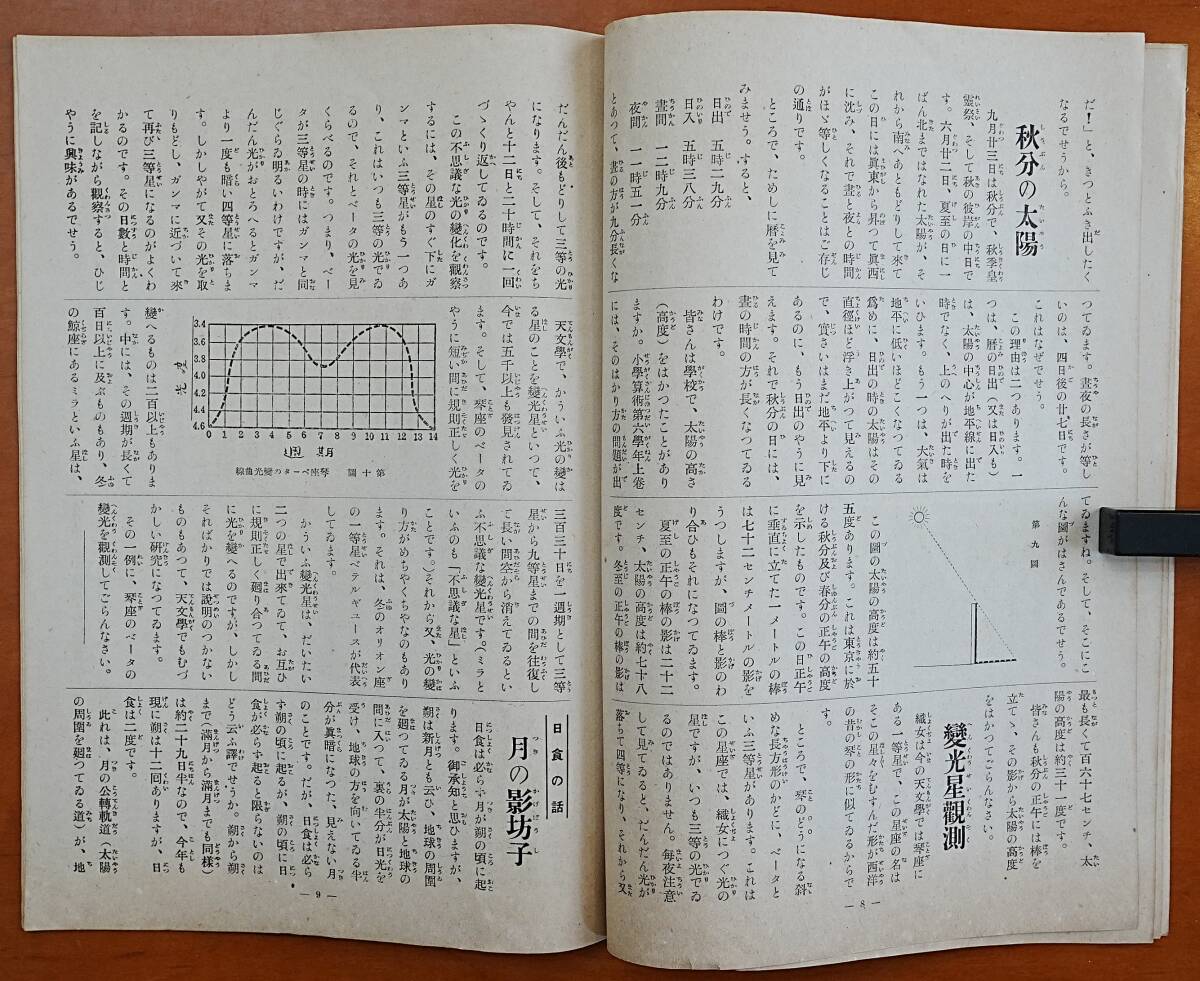 だ！」と、きつとふき出したく
なるでせうから。
秋分の太陽
九月廿三日は秋分で、秋季皇
靈祭、そして秋の彼岸の中日で
す。六月廿二日、夏至の日に一
ばん北まではなれた太陽が、そ
れから南へあともどりして來て
この日には眞東から昇つて眞西
に沈み、それで晝と夜との時間
がほゞ等しくなることはご存じ
の通りです。
ところで、ためしに曆を見て
みませう。すると、
日出　五時二九分
日入　五時三八分
晝間　一二時九分
夜間　一一時五一分
とあつて、晝の方が九分長くな
つてゐます。晝夜の長さが等し
いのは、四日後の廿七日です。
これはなぜでせう。
この理由は二つあります。一
つは、曆の日出（又は日入も）
は、太陽の中心が地平線に出た
時でなく、上のへりが出た時を
いひます。もう一つは、大氣は
地平に低いほどこくなつてゐる
爲めに、日出の時の太陽はその
直徑ほど浮き上がつて見えるの
で、實さいはまだ地平より下に
あるのに、もう日出のやうに見
えます。それで秋分の日には、
晝の時間の方が長くなつてゐる
わけです。
皆さんは學校で、太陽の高さ
（高度）をはかつたことがあり
ますか。小學算術第六學年上卷
には、そのはかり方の問題が出
てゐますね。そして、そこにこ
んな圖がはさんであるでせう。
第九圖
この圖の太陽の高度は約五十
五度あります。これは東京に於
ける秋分及び春分の正午の高度
を示したものです。この日正午
に垂直に立てた一メートルの棒
は七十二センチメートルの影を
うつしますが、圖の棒と影のわ
り合ひもそれになつてゐます。
夏至の正午の棒の影は二十二
センチ、太陽の高度は約七十八
度です。冬至の正午の棒の影は
最も長くて百六十七センチ、太
陽の高度は約三十一度です。
皆さんも秋分の正午には棒を
立てゝ、その影から太陽の高度
をはかつてごらんなさい。
變光星觀測
織女は今の天文學では琴座に
ある一等星で、この星座の名は
そこの星々をむすんだ形が西洋
の昔の琴の形に似てゐるからで
す。
ところで、琴のどうになる斜
めな長方形のかどに、ベータと
いふ三等星があります。これは
この星座では、織女につぐ光の
星ですが、いつも三等の光でゐ
るのではありません。每夜注意
して見てゐると、だんだん光が
落ちて四等になり、それから又
— 8 —
だんだん後もどりして三等の光
になります。そして、それをち
やんと十二日と二十時間に一回
づゝくり返してゐるのです。
この不思議な光の變化を觀察
するには、その星のすぐ下にガ
ンマといふ三等星がもう一つあ
り、これはいつも三等の光でゐ
るので、それとベータの光を見
くらべるのです。つまり、ベー
タが三等星の時にはガンマと同
じぐらゐ明るいわけですが、だ
んだん光がおとろへるとガンマ
より一度も暗い四等星に落ちま
す。しかしやがて又その光を取
りもどし、ガンマに近づいて來
て再び三等星になるのがよくわ
かるのです。その日數と時間と
を記しながら觀察すると、ひじ
やうに興味があるでせう。
天文學で、かういふ光の變は
る星のことを變光星といつて、
今では五千以上も發見されてゐ
ます。そして、琴座のベータの
やうに短い間に規則正しく光を
光度
3.4
3.8
4.0
4.2
4.6
0 1 2 3 4 5 6 7 8 9 10 11 12 13 14
週期
第十圖　琴座ベータの變光曲線
變へるものは二百以上もありま
す。中には、その週期が長くて
百日以上に及ぶものもあり、冬
の鯨座にあるミラといふ星は、
三百三十日を一週期として三等
星から九等星までの間を往復し
て長い間空から消えてゐるとい
ふ不思議な變光星です。（ミラと
いふのも「不思議な星」といふ
ことです。）それから又、光の變
り方がめちやくちやなのもあり
ます。それは、冬のオリオン座
の一等星ベテルギュースが代表
してゐます。
かういふ變光星は、だいたい
二つの星で出來てゐて、お互ひ
に規則正しく廻り合つてゐる間
に光を變へるのですが、しかし
そればかりでは說明のつかない
ものもあつて、天文學でもむづ
かしい硏究になつてゐます。
その一例に、琴座のベータの
變光を觀測してごらんなさい。
日食の話
月の影坊子
日食は必らず月が朔の頃に起
ります。御承知と思ひますが、
朔は新月とも云ひ、地球の周圍
を廻つてゐる月が太陽と地球の
間に入つて、裏の半分が日光を
受け、地球の方を向いてゐる半
分が眞暗になつた、見えない月
のことです。だが、日食は必ら
ず朔の頃に起るが、朔の頃に日
食が必らず起ると限らないのは
どう云ふ譯でせうか。朔から朔
まで（滿月から滿月までも同樣）
は約二十九日半なので、今年も
現に朔は十二回ありますが、日
食は二度です。
此れは、月の公轉軌道（太陽
の周圍を廻つてゐる道）が、地
— 9 —